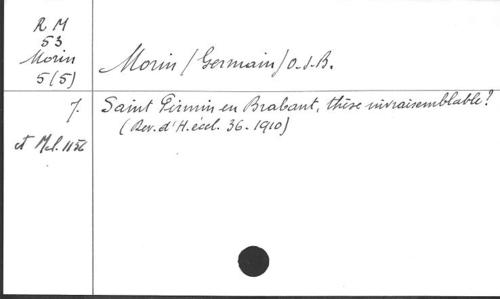 R M
53
Morin
5(5)
Morin / Germain / O.S.B.
7. Saint Pirmin en Brabant, thèse invraisemblable?
(Rev. d'H. écel. 36. 1910)
et Mel. 1156